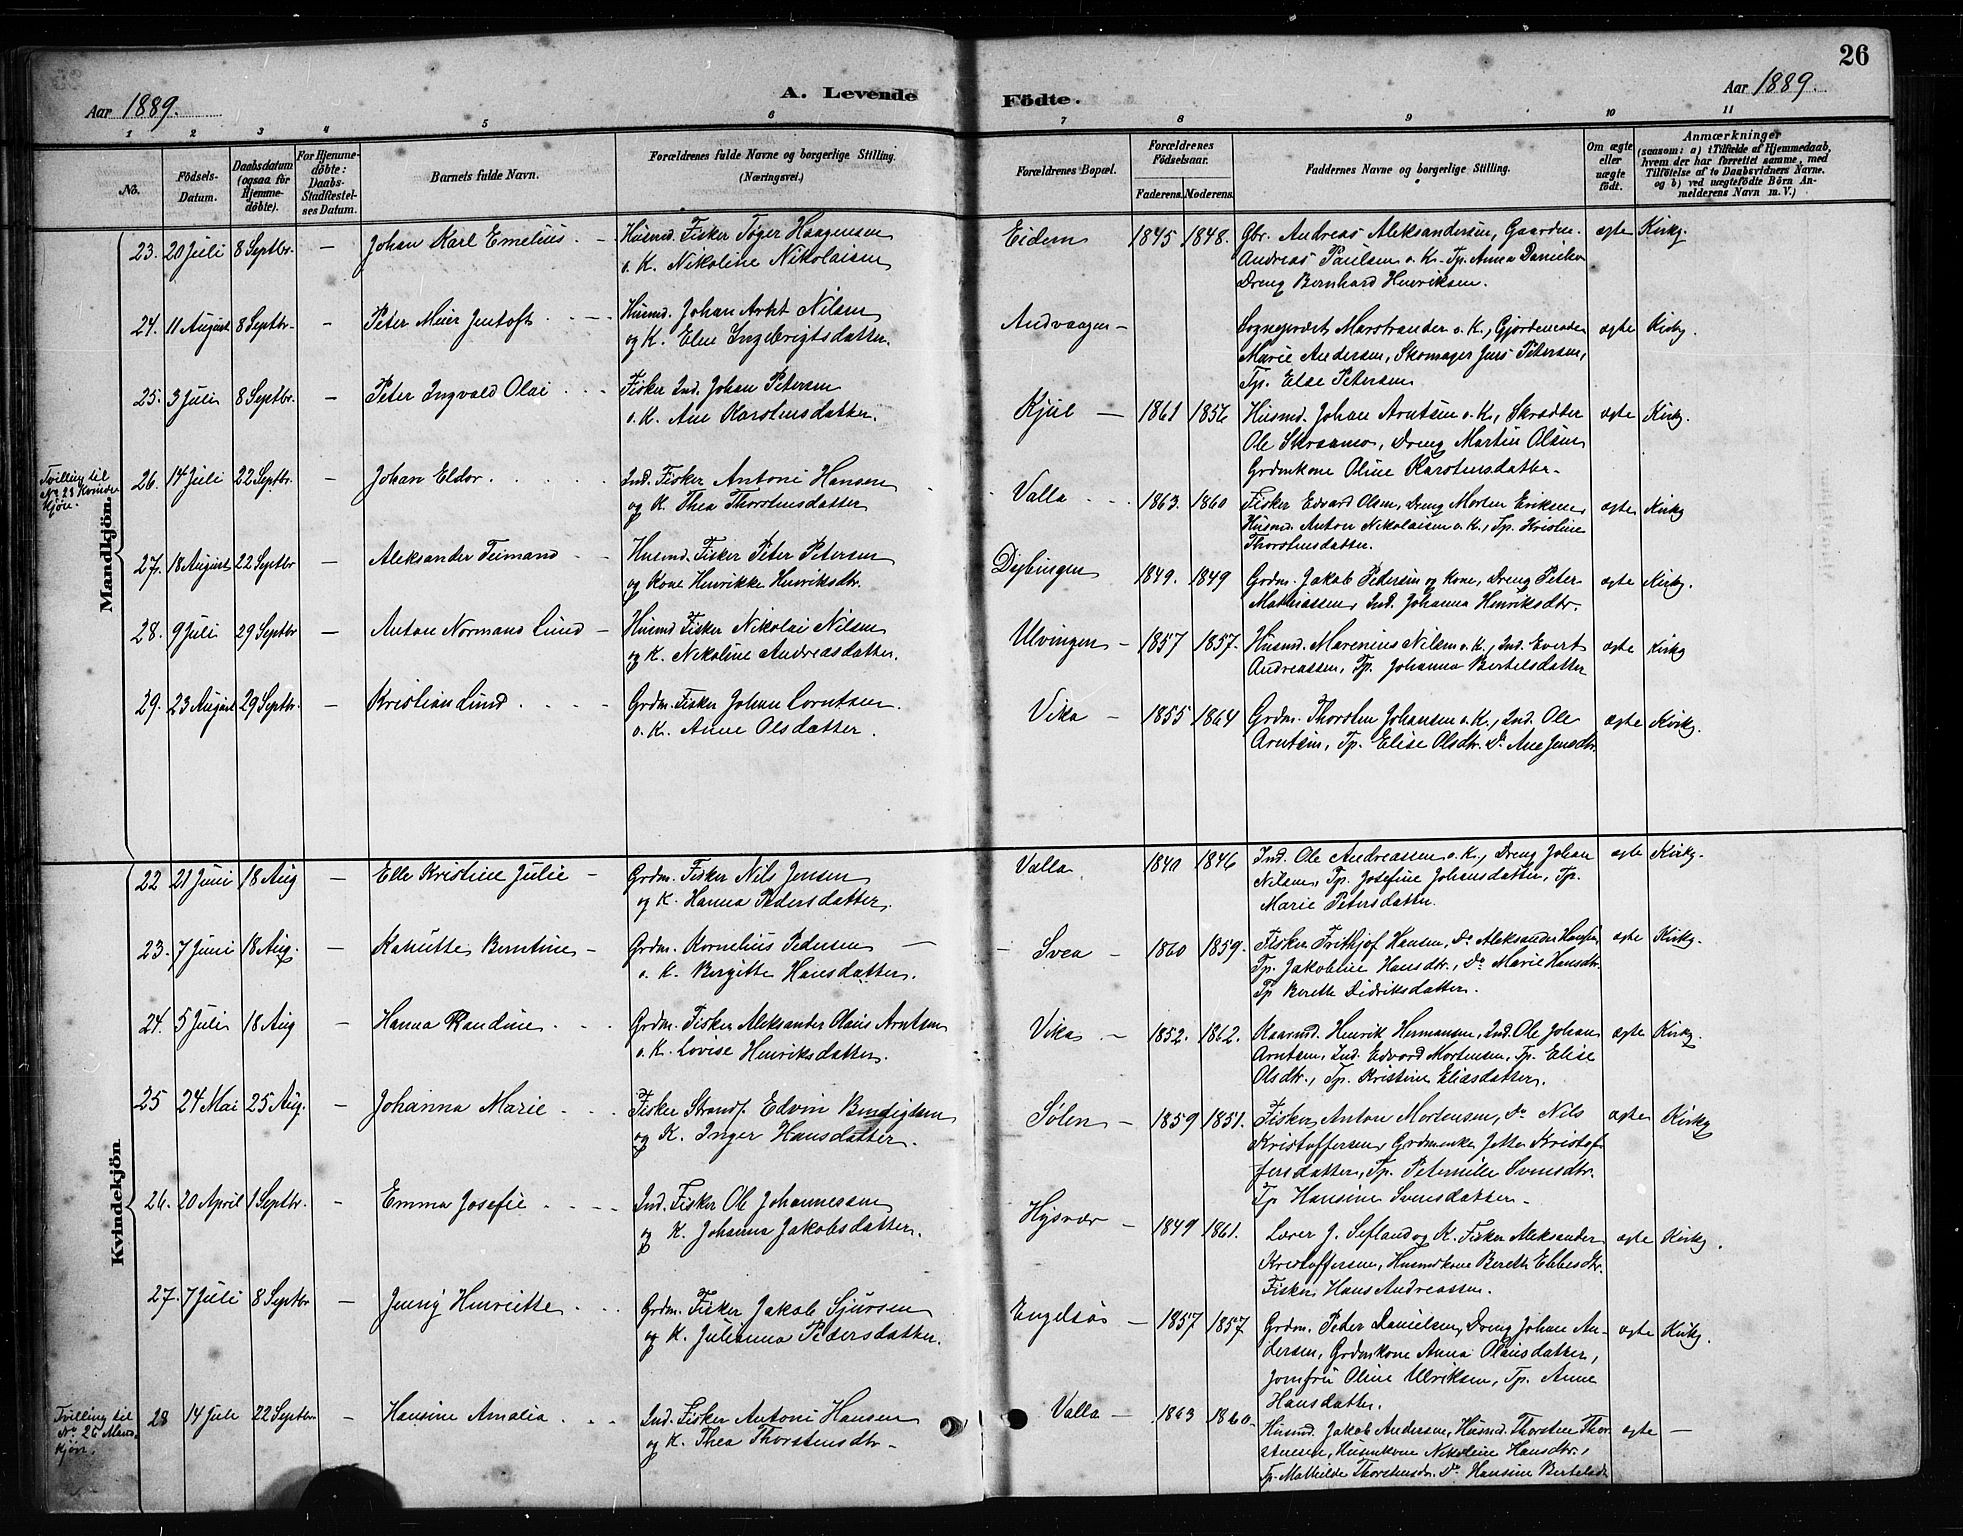 26
Aar 1889.
A. Levende Födte.
Aar 1889.
1 2 3 4 5 6 7 8 9 10 11
No.
Födsels-Datum.
Daabsdatum (ogsaa for Hjemme-döbte).
For Hjemme-döbte: Daabs-Stadfæstel-ses Datum.
Barnets fulde Navn.
Forældrenes fulde Navne og borgerlige Stilling. (Næringsvei.)
Forældrenes Bopæl.
Forældrenes Födselsaar.
Faderens. Moderens.
Faddernes Navne og borgerlige Stilling.
Om ægte eller uægte födt.
Anmærkninger
(saasom: a) i Tilfælde af Hjemmedaab, hvem der har forrettet samme, med Tilföielse af to Daabsvidners Navne, og b) ved uægtefödte Börn An-melderens Navn m. V.)
Mandkjön.
23. 20 Juli 8 Septbr. – Johan Karl Emelius – Husmd. Fisker Tøger Haagensen
o. K. Nikoline Nikolaisen
Eidem 1845 1848. Gbr. Andreas Aleksandersen, Gaardm.
Andreas Paulsen o. K. Tp. Anna Danielsen
Dreng Bernhard Henriksen.
ægte Kirky.
24. 11 August 8 Septbr. – Peter Meier Jentoft – Husmd. Johan Arnt Nilsen
og K. Elen Ingebrigtsdatter.
Andvaagen –
Sogneprest Marstrander o. K., Gjordemoder
Marie Andersen, Skomager Jens Petersen,
Tp. Else Petersen
ægte Kirky.
25. 3 Juli 8 Septbr. – Peter Ingvald Olai Fisker Ind. Johan Petersen
o. K. Ane Karstensdatter.
Kjul – 1861 1856 Husmd. Johan Arntsen o. K., Skrædder
Ole Skraamo, Dreng Martin Olsen
Grdmkone Oline Karstensdatter.
ægte Kirky.
Tvilling til
No 28 Kvinde-
kjön.
26. 14 Juli 22 Septbr. – Johan Eldor Ind. Fisker Antoni Hansen
og K. Thea Thorstensdatter
Valla 1863. 1860 Fisker Edvard Olsen, Dreng Morten Eriksen
Husmd. Anton Nikolaisen o. K., Tp. Kristine
Thorstensdatter.
ægte Kirky
27. 18 August 22 Septbr – Aleksander Teimand Husmd. Fisker Peter Petersen
og Kone Henrikke Henriksdtr.
Dybingen 1849. 1849 Grdm. Jakob Pedersen og Kone, Dreng Peter
Mathiassen, Ind. Johanna Henriksdtr.
ægte Kirky.
28. 9 Juli 29 Septbr – Anton Normand Lund – Husmd Fisker Nikolai Nilsen
og K. Nikoline Andreasdatter.
Ulvingen – 1857 1857. Husmd. Marenius Nilsen o. K., Ind. Evert
Andreassen, Tp. Johanna Bertelsdatter
ægte Kirky
29. 23 August 29 Septbr. – Kristian Lund Grdm. Fisker Johan Corntsen.
o. K. Anne Olsdatter.
Vika – 1855 1864 Grdm. Thorsten Johansen o. K., Ind. Ole
Arntsen, Tp. Elise Olsdtr. Do Ane Jensdtr.
ægte Kirky.
Kvindekjön
22 21 Juni 18 Aug – Elle Kristine Julie – Grdm. Fisker Nils Jensen
og K. Hanna Pedersdatter.
Valla. 1840 1846 Ind. Ole Andreassen o. K., Dreng Johan
Nilsen, Tp. Josefine Johansdatter, Tp.
Marie Petersdatter.
ægte Kirky.
23. 7 Juni 18 Aug. – Kanutte Berntine – Grdm. Kornelius Pedersen –
o. K. Bergitte Hansdatter.
Svea – 1860 1859. Fisker Frithjof Hansen, Do Aleksander Hansen
Tp. Jakobine Hansdtr., Do Marie Hansdtr.
Tp Berette Didriksdatter.
ægte Kirky.
24. 5 Juli 18 Aug – Hanna Randine Grdm. Fisker Aleksander Olaus Arntsen
o. K. Lovise Henriksdatter.
Vika – 1852. 1862. Kaarmd. Henrik Hermansen, Ind. Ole Johan
Arntsen, Ind. Edvard Mortensen, Tp. Elise
Olsdtr., Tp. Kristine Eliasdatter.
ægte Kirky.
25 24 Mai 25 Aug. – Johanna Marie Fisker Strands. Edvin Bendigtsen
og K. Inger Hansdatter.
Sølen – 1859 1851. Fisker Anton Mortensen, Do Nils
Kristoffersen, Grdmenke Jette Kristof-
fersdatter, Tp. Peternille Svensdtr.
Tp Hansine Svensdatter –
ægte Kirky
26. 20 April 1 Septbr. – Emma Josefie Ind. Fisker Ole Johannessen
og K. Johanna Jakobsdatter.
Hysvær – 1849 1861. Lærer J. Sefland og K. Fisker Aleksander
Kristoffersen, Husmdkone Berette Ebbesdtr.
Fisker Hans Andreassen.
ægte Kirky.
27. 7 Juli 8 Septbr – Jenny Henriette Grdm. Fisker Jakob Sjursen
og K. Julianna Pedersdatter.
Engelsøs – 1857 1857 Grdm. Peter Danielsen, Dreng Johan An-
dersen, Grdmkone Anna Olausdatter,
Jomfru Oline Ulriksen, Tp. Anne
Hansdatter.
ægte Kirky.
Tvilling til
No 26 Mand-
kjön.
28 14 Juli 22 Septbr. – Hansine Amalia Ind. Fisker Antoni Hansen
og K. Thea Thorstensdtr –
Valla – 1863 1860. Husmd. Jakob Andersen, Husmd. Thorsten Thor-
stensen, Husmkone Nikoline Hansdtr.,
Tp. Mathilde Thorstensdtr. Do Hansine Bertelsdtr
ægte –